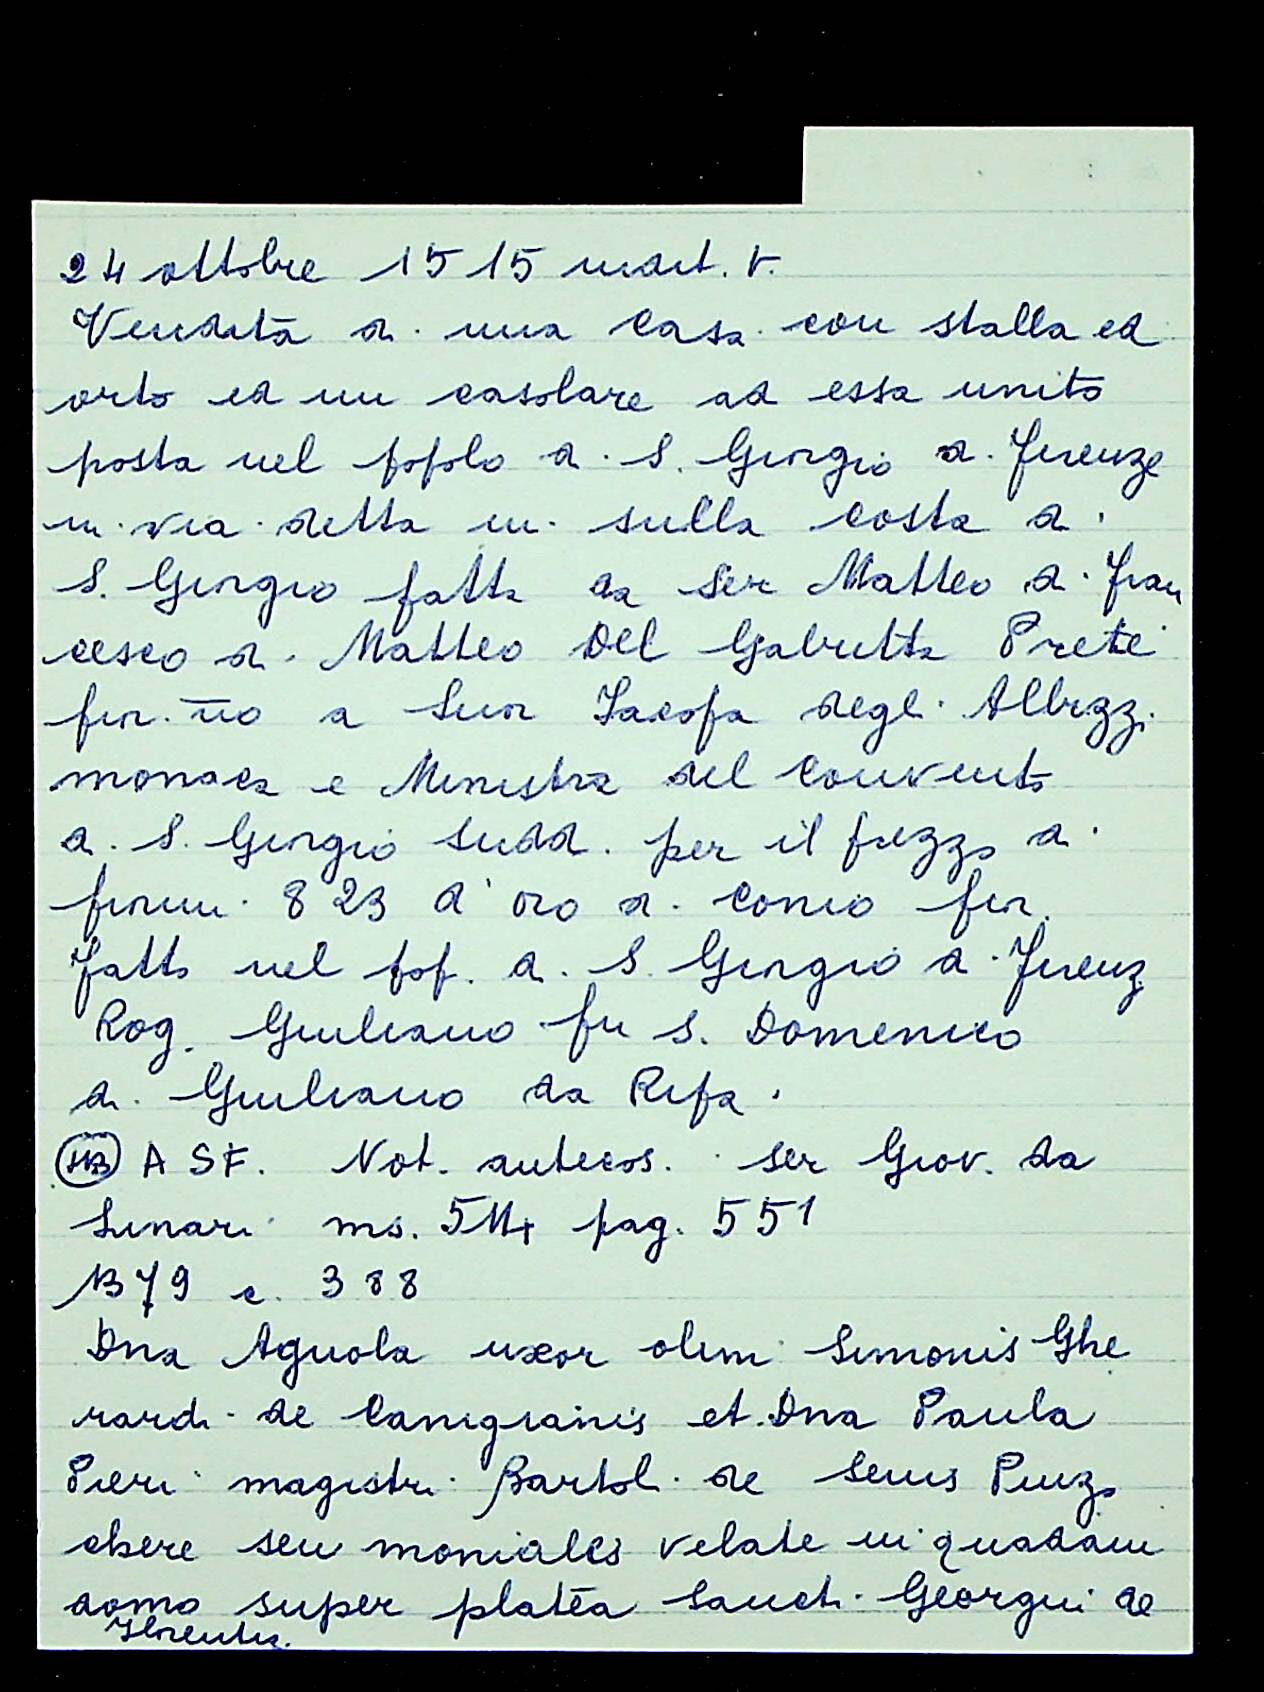 24 ottobre 1515 indit. V.
Vendita di una casa con stalla ed
orto ed un casolare ad essa unito
posta nel popolo di S. Giorgio di Firenze
in via detta in sulla costa di
S. Giorgio fatta da Ser Matteo di Fran
cesco di Matteo Del Gabrutta Prete
fior.no a Suor Jacopa degli Albizzi
monaca e Ministra del Convento
di S. Giorgio sudd. per il prezzo di
fiorini 823 d'oro di conio fior.
Fatto nel pop. di S. Giorgio di Firenz
Rog. Giuliano fu S. Domenico
di Giuliano da Ripa.
NB ASF. Not. antecos. ser Giov. da
Linari ms. pag. 551
1379 c. 388
Dna Agnola uxor olim Simonis Ghe
rardi de Canigianis et Dna Paula
Pieri magistri Bartoli de Senis Pinzo
chere seu moniales velate in quadam
domo super platea Sancti Georgii de
Florentia.